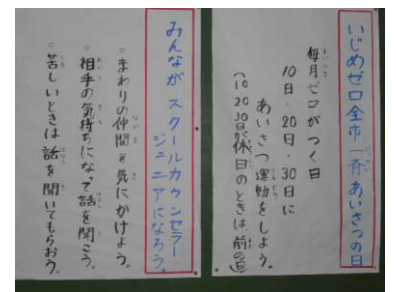 いじめゼロ全市一斉あいさつの日
毎月ゼロがつく日
10日・20日・30日に
あいさつ運動をしよう。
(10.20.30日が休日のときは、前の
みんながスクールカウンセラー
ジュニアになろう。
○まわりの仲間を気にかけよう。
○相手の気持ちになって話を聞こう。
○苦しいときは話を聞いてもらおう。